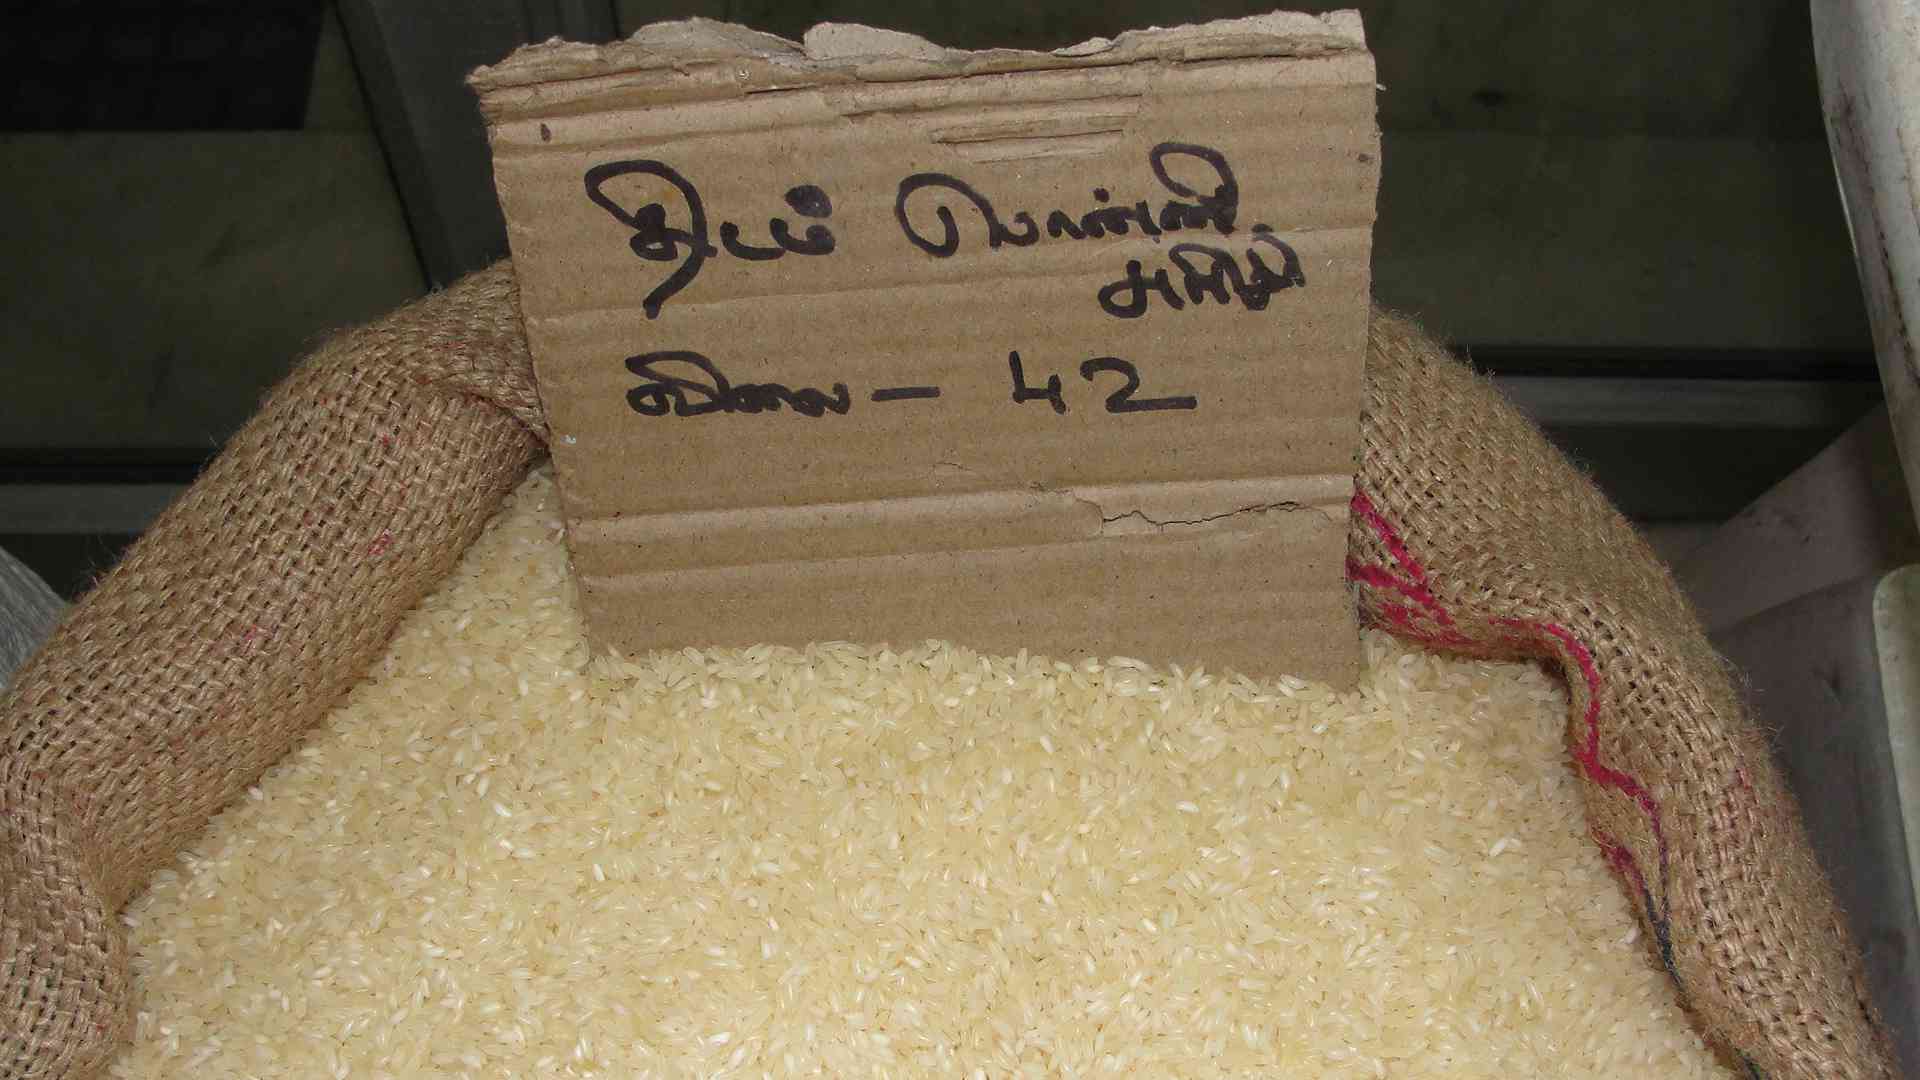 திடம் பொன்னி
அரிசி
விலை - 42